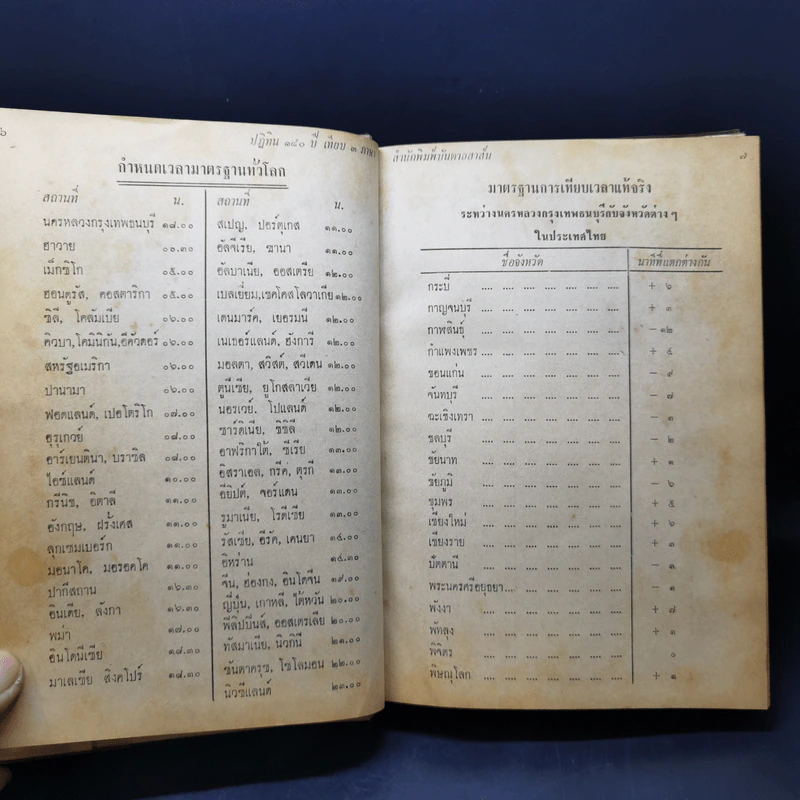 ๖
ปฏิทิน ๑๘๐ ปี เทียบ ๓ ภาษา
กำหนดเวลามาตรฐานทั่วโลก
สถานที่ น.
นครหลวงกรุงเทพธนบุรี ๑๘.๐๐
ฮาวาย ๐๐.๓๐
เม็กซิโก ๐๕.๐๐
ฮอนดูรัส, คอสตาริกา ๐๕.๐๐
ชิลี, โคลัมเบีย ๐๖.๐๐
คิวบา,โดมินิกัน,อีคัวดอร์ ๐๖.๐๐
สหรัฐอเมริกา ๐๖.๐๐
ปานามา ๐๖.๐๐
ฟอคแลนด์, เปอโตริโก ๐๗.๐๐
อุรุเกวย์ ๐๘.๐๐
อาร์เยนตินา, บราซิล ๐๘.๐๐
ไอซ์แลนด์ ๑๐.๐๐
กรีนิช, อิตาลี ๑๑.๐๐
อังกฤษ, ฝรั่งเศส ๑๑.๐๐
ลุกเซมเบอร์ก ๑๑.๐๐
มอนาโค, มอรอคโค ๑๑.๐๐
ปากีสถาน ๑๖.๓๐
อินเดีย, ลังกา ๑๖.๓๐
พม่า ๑๗.๐๐
อินโดนีเซีย ๑๘.๓๐
มาเลเซีย สิงคโปร์ ๑๘.๓๐
สถานที่ น.
สเปญ, ปอร์ตุเกส ๑๑.๐๐
อัลจีเรีย, ฆานา ๑๑.๐๐
อัลบาเนีย, ออสเตรีย ๑๒.๐๐
เบลเยี่ยม,เชคโคสโลวาเกีย ๑๒.๐๐
เดนมาร์ค, เยอรมนี ๑๒.๐๐
เนเธอร์แลนด์, ฮังการี ๑๒.๐๐
มอลตา, สวิสต์, สวีเดน ๑๒.๐๐
ตูนีเซีย, ยูโกสลาเวีย ๑๒.๐๐
นอรเวย์, โปแลนด์ ๑๒.๐๐
ซาร์ดิเนีย, ซิซิลี ๑๒.๐๐
อาฟริกาใต้, ซีเรีย ๑๓.๐๐
อิสราเอล, กรีค, ตุรกี ๑๓.๐๐
อียิปต์, จอร์แดน ๑๓.๐๐
รูมาเนีย, โรดีเซีย ๑๓.๐๐
รัสเซีย, อีรัค, เคนยา ๑๔.๐๐
อิหร่าน ๑๔.๓๐
จีน, ฮ่องกง, อินโดจีน ๑๙.๐๐
ญี่ปุ่น, เกาหลี, ไต้หวัน ๒๐.๐๐
ฟิลิปปินส์, ออสเตรเลีย ๒๐.๐๐
ทัสมาเนีย, นิวกินี ๒๑.๐๐
ซันตาครุซ, โซโลมอน ๒๒.๐๐
นิวซีแลนด์ ๒๓.๐๐
สำนักพิมพ์บันดาลสาส์น ๗
มาตรฐานการเทียบเวลาแท้จริง
ระหว่างนครหลวงกรุงเทพธนบุรีกับจังหวัดต่าง ๆ
ในประเทศไทย
ชื่อจังหวัด นาทีที่แตกต่างกัน
กระบี่ .... .... .... .... .... .... + ๖
กาญจนบุรี .... .... .... .... .... .... + ๓
กาฬสินธุ์ .... .... .... .... .... .... – ๑๒
กำแพงเพชร .... .... .... .... .... .... + ๕
ขอนแก่น .... .... .... .... .... .... – ๙
จันทบุรี .... .... .... .... .... .... – ๗
ฉะเชิงเทรา .... .... .... .... .... .... – ๓
ชลบุรี .... .... .... .... .... .... – ๒
ชัยนาท .... .... .... .... .... .... + ๑
ชัยภูมิ .... .... .... .... .... .... – ๖
ชุมพร .... .... .... .... .... .... + ๕
เชียงใหม่ .... .... .... .... .... .... + ๖
เชียงราย .... .... .... .... .... .... + ๓
ปัตตานี .... .... .... .... .... .... – ๓
พระนครศรีอยุธยา.... .... .... .... .... .... – ๑
พังงา .... .... .... .... .... .... + ๗
พัทลุง .... .... .... .... .... .... + ๑
พิจิตร .... .... .... .... .... .... ๐
พิษณุโลก .... .... .... .... .... .... + ๑